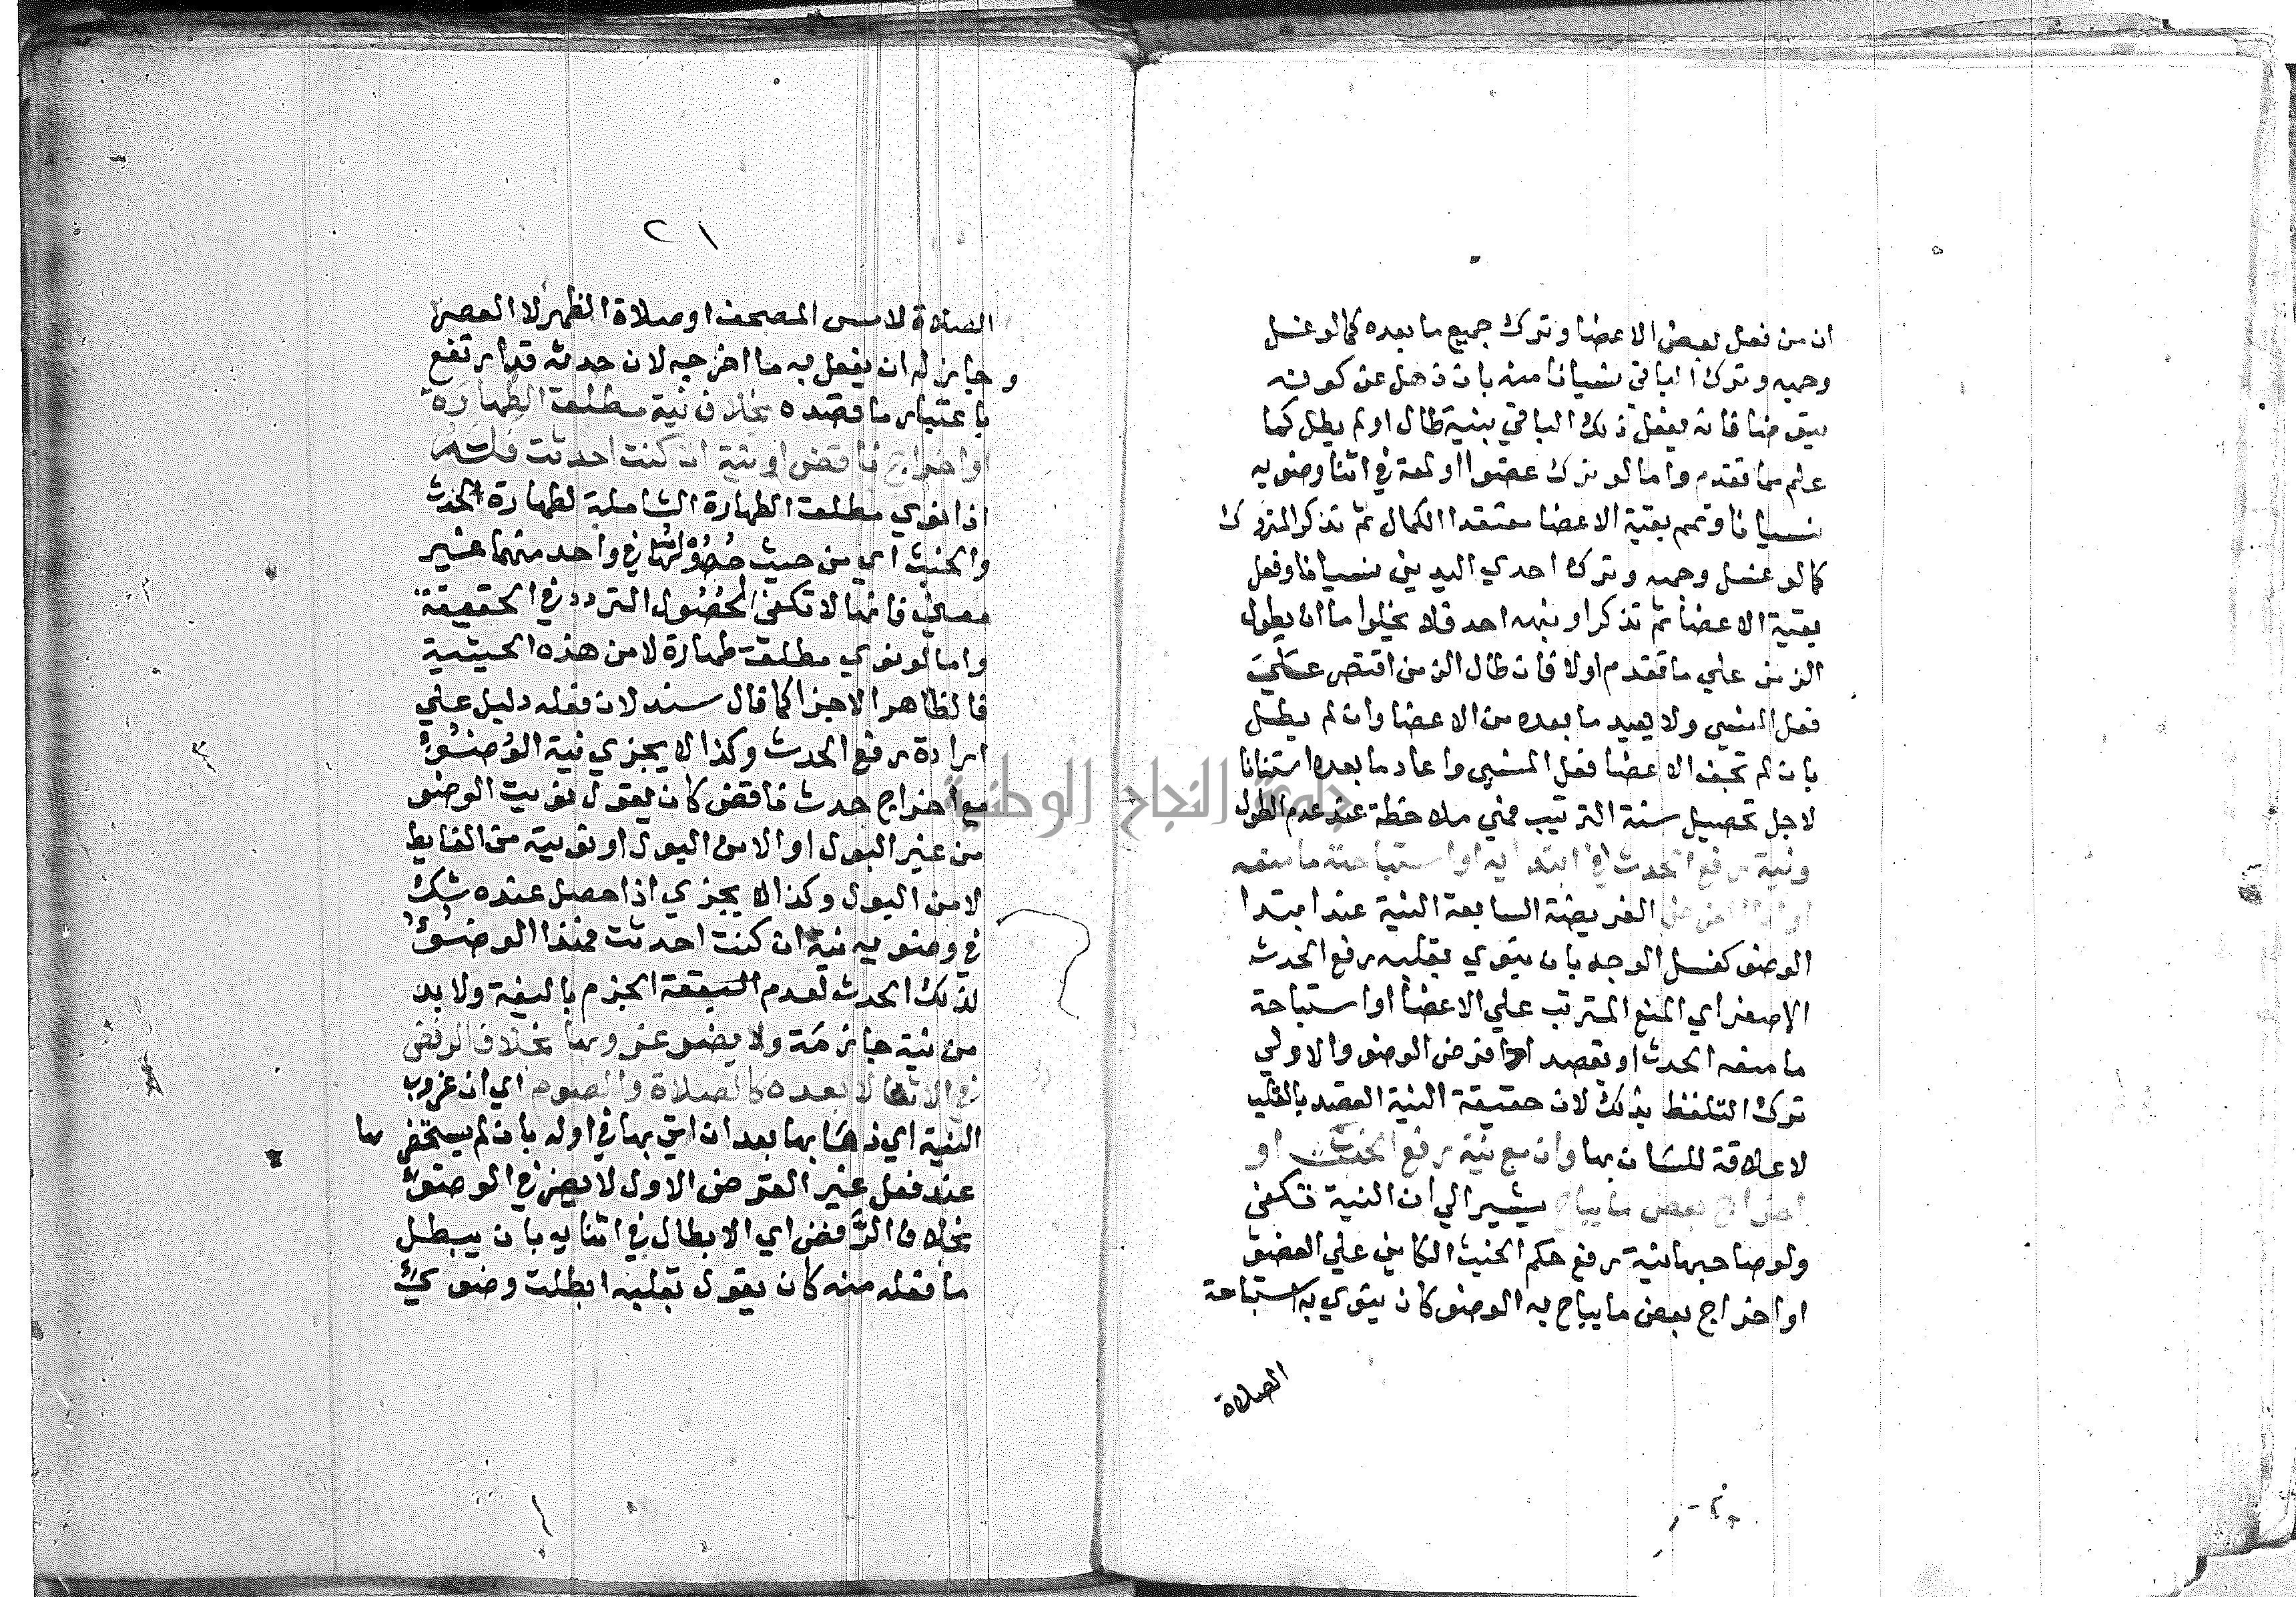 ان من فعل بعض الاعضا وترك جميع ما بعده كما لو غسل
وجهه وترك الباقي نسيانا منه بان ذهل عن كونه
يتوضا فانه يفعل ذلك الباقي بنية طال او لم يطل كما
علم مما تقدم واما لو ترك عضوا او لمعة في اثنا وضويه
نسيانا وتمم بقية الاعضا معتقدا الكمال ثم تذكر المتروك
كما لو غسل وجهه وترك احدي اليدين نسيانا وفعل
بقية الاعضا ثم تذكر او نبهه احد فلا يخلوا ما ان يطول
الزمن علي ما تقدم او لا فان طال الزمن اقتصر علي
فعل المنسي ولا يعيد ما بعده من الاعضا وان لم يطل
بان لم تجف الاعضا فعل المنسي واعاد ما بعده استنانا
لاجل تحصيل سنة الترتيب فهي ملاحظة عند عدم الطول
ونية رفع الحدث في ابتدايه او استباحة ما منعه
الفريضة السابعة النية عند ابتدا
الوضو كغسل الوجه بان ينوي بقلبه رفع الحدث
الاصغر اي المنع المترتب علي الاعضا او استباحة
ما منعه الحدث او يقصد ادا فرض الوضو والاولي
ترك التلفظ بذلك لان حقيقة النية القصد بالقلب
لا علاقة للسان بها وان مع نية رفع الخبث او
اخراج بعض ما يباح يشير الي ان النية تكفي
ولو صاحبها نية رفع حكم الخبث الكاين علي العضو
او اخراج بعض ما يباح به الوضو كان ينوي به استباحة
الصلاة
٢١
الصلاة لا مس المصحف او صلاة الظهر لا العصر
وجايز له ان يفعل به ما اخرجه لان حدثه قد ارتفع
باعتبار ما قصده بخلاف نية مطلقت الطهارة
او اخراج ناقض او نية ان كنت احدثت فله
اذا نوي مطلقت الطهارة الشاملة لطهارة الحدث
والخبث اي من حيث حصولها في واحد منهما غير
معين فانها لا تكفي لحصول التردد في الحقيقة
واما لو نوي مطلقت طهارة لا من هذه الحيثية
فالظاهر الاجزا كما قال سند لان فعله دليل علي
ارادة رفع الحدث وكذا لا يجزي نية الوضو
مع اخراج حدث ناقض كان يقول نويت الوضو
من غير البول او الا من البول او نويته من الغايط
لا من البول وكذا لا يجزي اذا حصل عنده شك
في وضويه نية ان كنت احدثت فهذا الوضو
لذلك الحدث لعدم الجزم بالنية ولا بد
من نية جازمة ولا يضر عزوبها بخلاف الرفض
في الاثنا لا بعده كالصلاة والصوم اي ان عزوب
النية اي ذهابها بعد ان اتي بها في اوله بان لم يستحضرها
عند فعل غير الفرض الاول لا يضر في الوضو
بخلاف الرفض اي الابطال في اثنايه بان يبطل
ما فعله منه كان يقول بقلبه ابطلت وضوئي
جامعة النجاح الوطنية